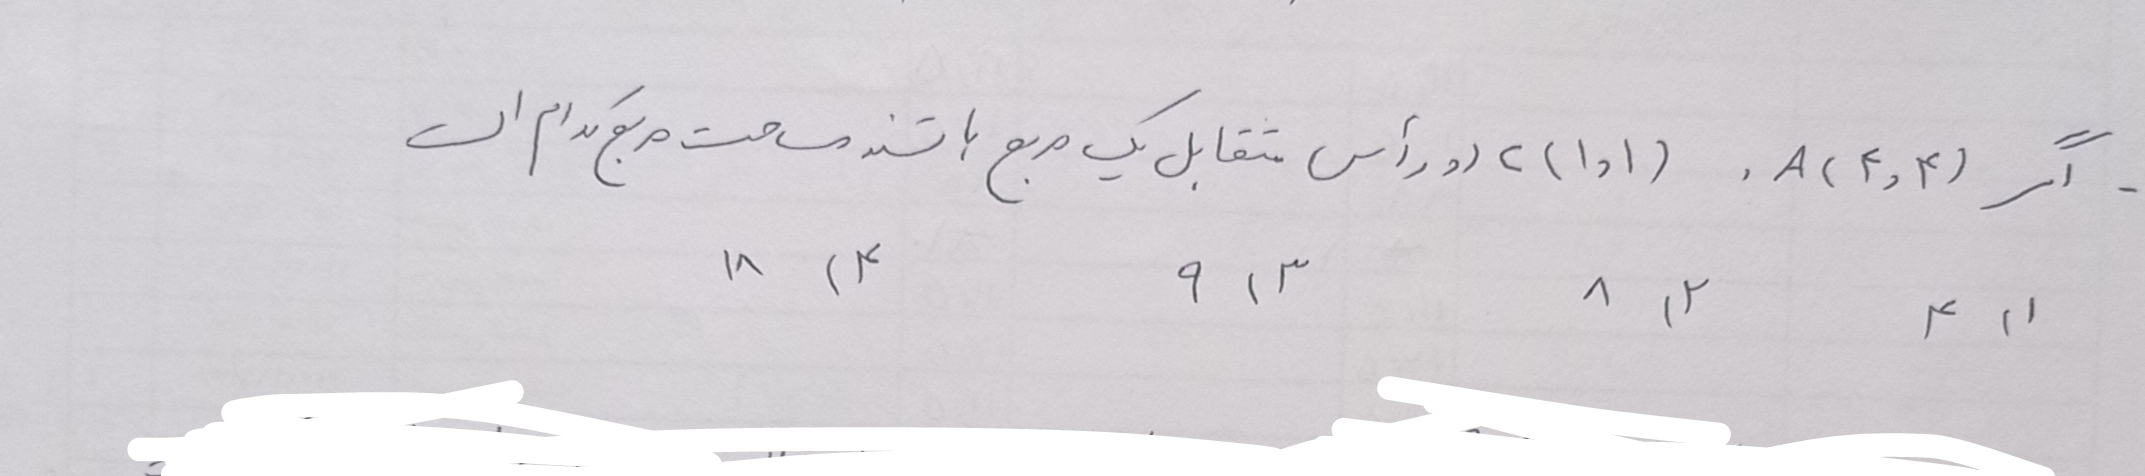 - اگر A(۴,۴) , C(۱,۱) دو رأس متقابل یک مربع باشند مساحت مربع کدام است
۱) ۴ ۲) ۸ ۳) ۹ ۴) ۱۸